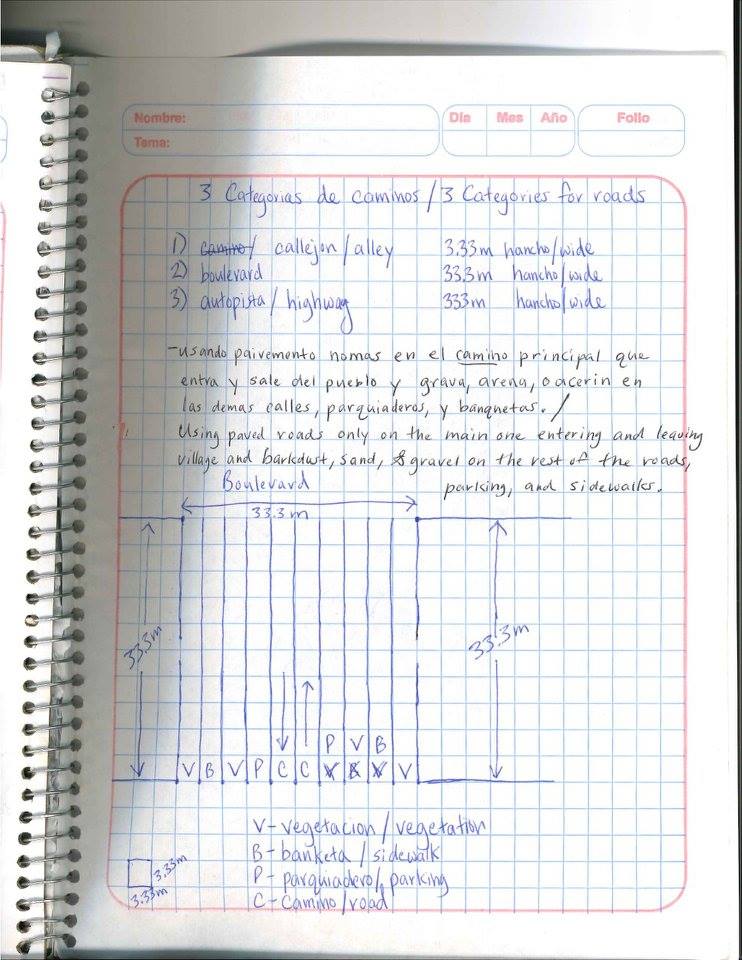 Nombre: Día Mes Año Folio
Tema:
3 Categorias de caminos / 3 Categories for roads
1) camino/ callejon / alley 3.33m hancho/wide
2) boulevard 33.3m hancho/wide
3) autopista / highway 333m hancho/wide
-usando paivemento nomas en el camino principal que
entra y sale del pueblo y grava, arena, o acerin en
las demas calles, parquiaderos, y banquetas. /
Using paved roads only on the main one entering and leaving
village and barkdust, sand, & gravel on the rest of the roads,
parking, and sidewalks.
Boulevard
33.3m
33.3m
33.3m
P V B
V B V P C C V B V V
V- vegetacion / vegetation
B- banketa / sidewalk
P- parquiadero / parking
C- Camino / road
3.33m
3.33m